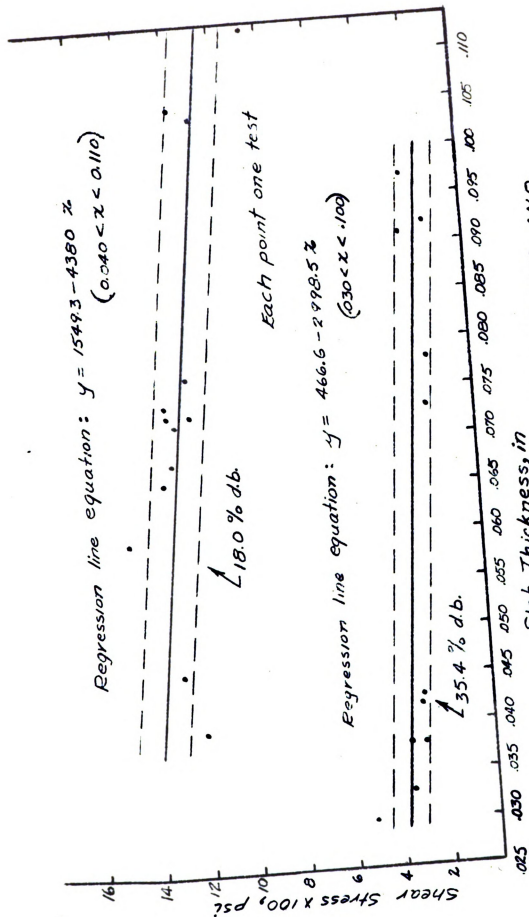 Regression line equation: y = 1549.3-4380 x
(0.040 < x < 0.110)
18.0 % d.b.
Each point one test
Regression line equation: y = 466.6-2998.5 x
(.030 < x < .100)
35.4 % d.b.
Shear Stress x 100, psi
16
14
12
10
8
6
4
2
.025 .030 .035 .040 .045 .050 .055 .060 .065 .070 .075 .080 .085 .090 .095 .100 .105 .110
Thickness, in